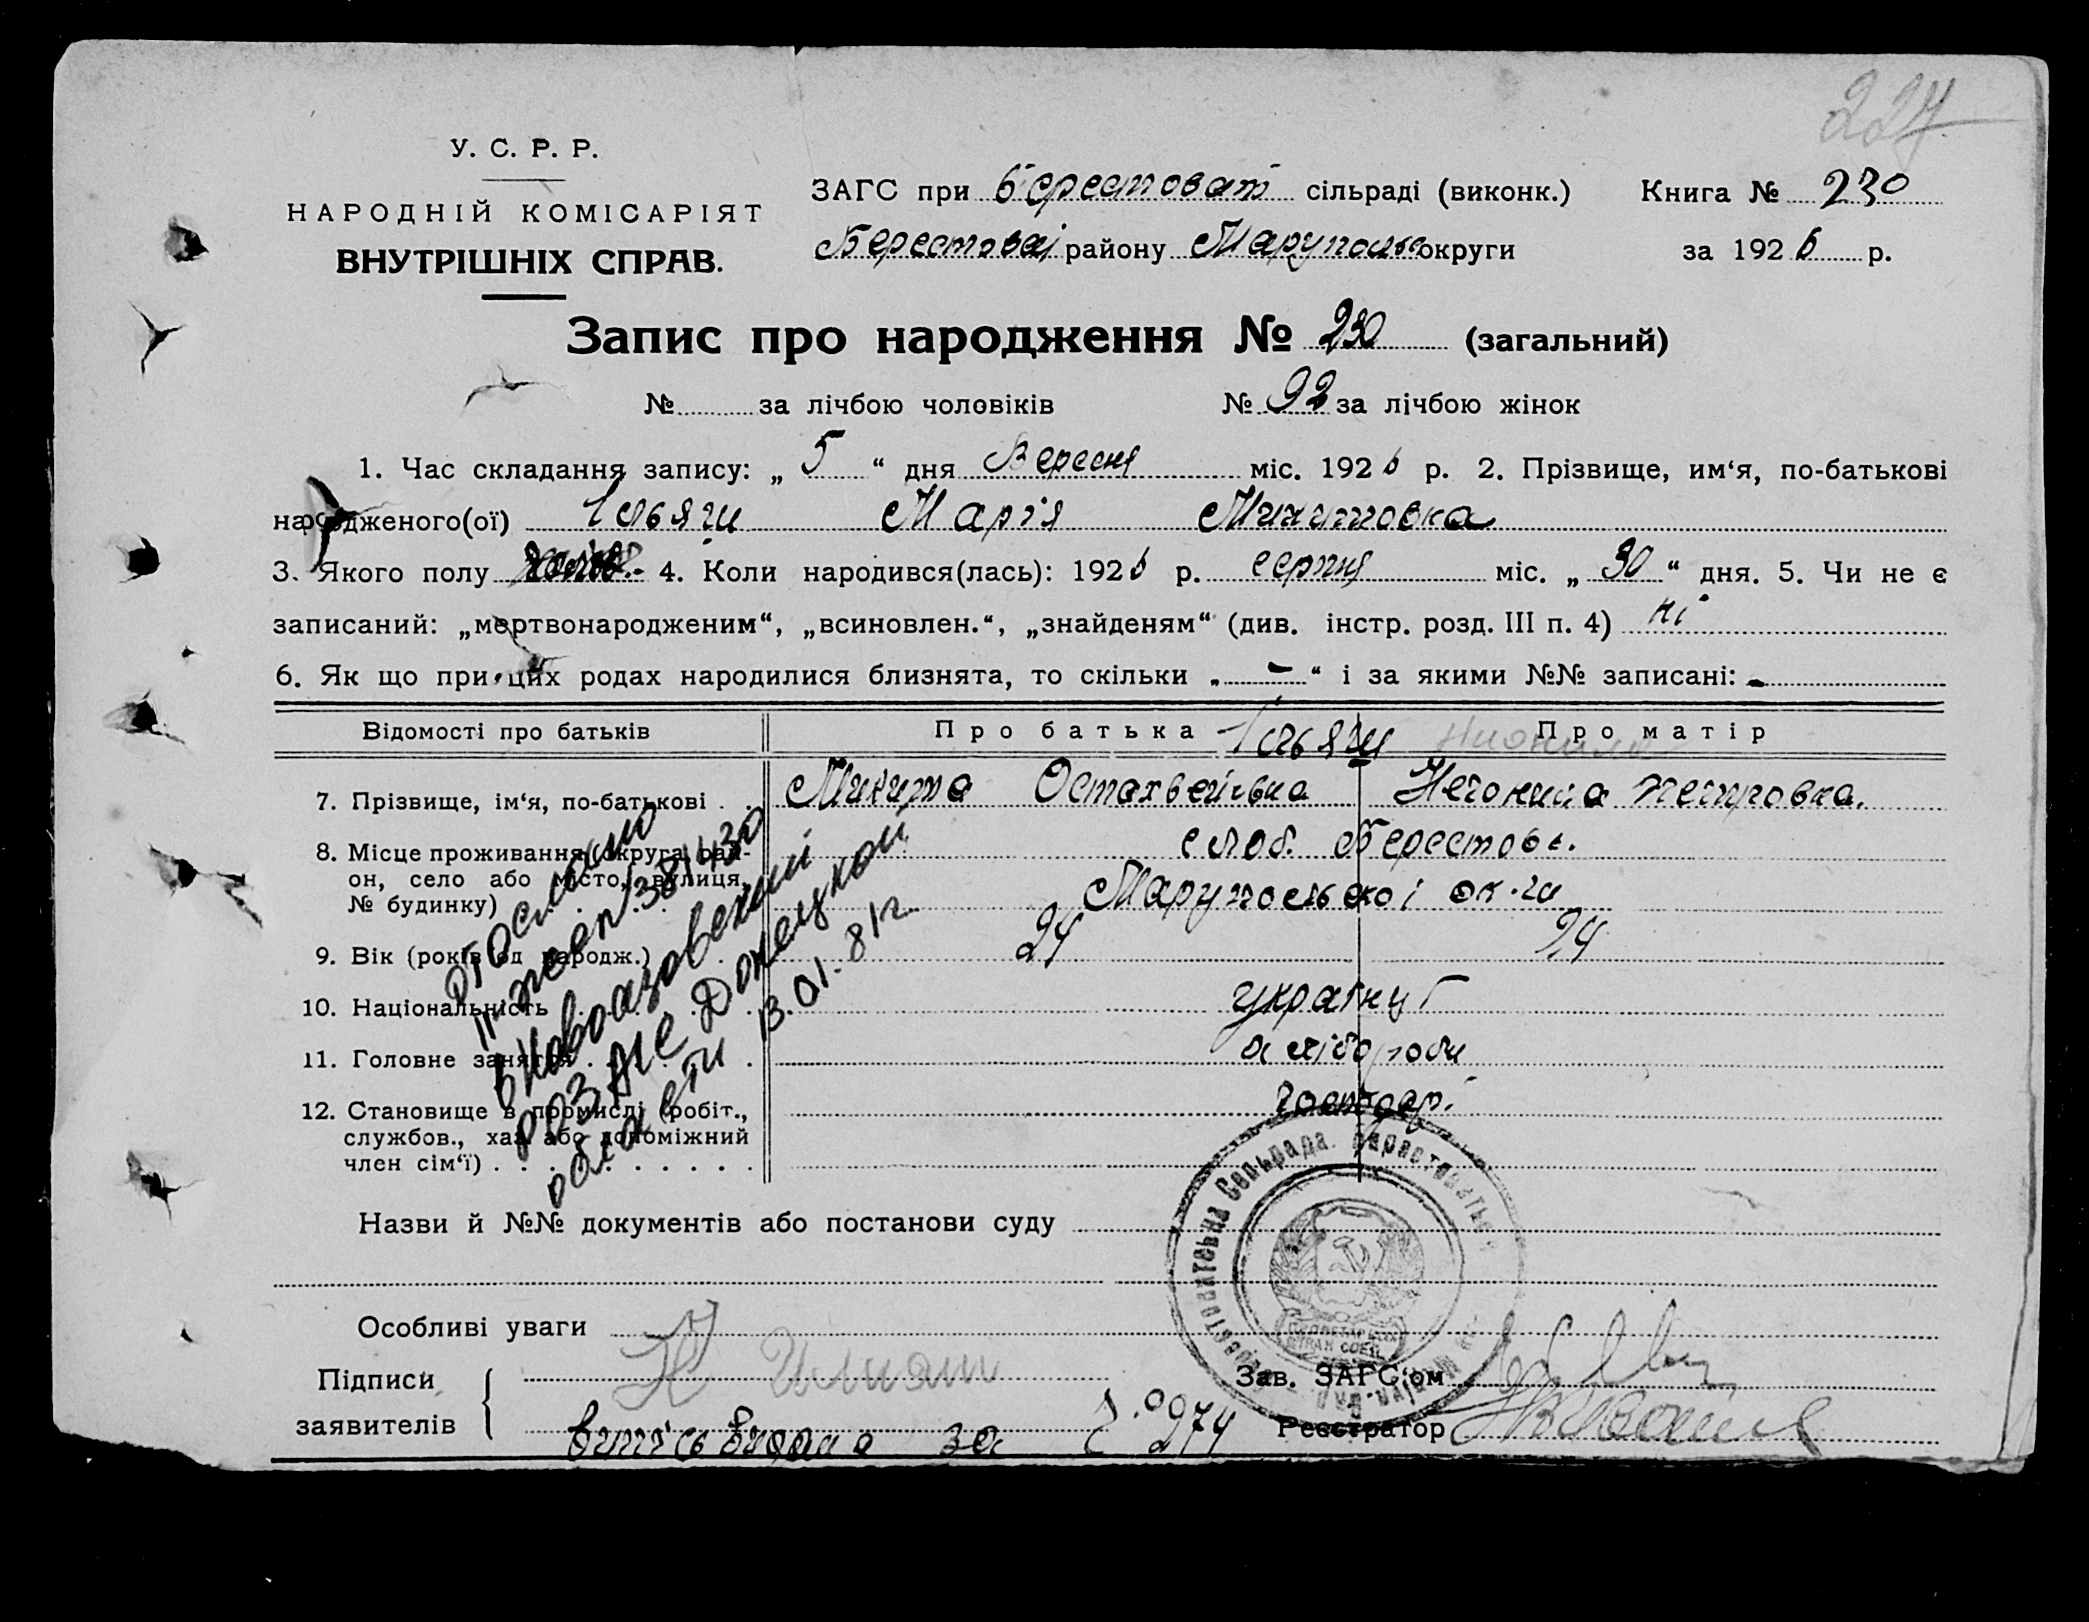 227
У. С. Р. Р.
НАРОДНІЙ КОМІСАРІЯТ
ВНУТРІШНІХ СПРАВ.
ЗАГС при Берестоват сільраді (виконк.) Книга № 230
Берестової району Маруполь округи за 1926 р.
Запис про народження № 230 (загальний)
№ за лічбою чоловіків № 92 за лічбою жінок
1. Час складання запису: „ 5 “ дня Вересня міс. 1926 р. 2. Прізвище, им‘я, по-батькові
народженого(ої) Ільяги Марія
3. Якого полу 4. Коли народився(лась): 1926 р. серпня міс. „ 30 “ дня. 5. Чи не є
записаний: „мертвонародженим“, „всиновлен.“, „знайденям“ (див. інстр. розд. III п. 4) ні
6. Як що при цих родах народилися близнята, то скільки „ - “ і за якими №№ записані: -
Відомості про батьків Про батька Про матір
7. Прізвище, ім‘я, по-батькові . . Микита
8. Місце проживання (округа, рай-
он, село або місто, вулиця,
№ будинку)
слоб. Берестов.
Марупольскої ок-ги
9. Вік (років од народж.) 24 24
10. Національність
11. Головне заняття хлібороби
12. Становище в промислі (робіт.,
службов., хаз. або допоміжний
член сім‘ї)
господар.
отослано
II экземп 381430
в Новоазовский
РОЗАГС Донецкой
области 13.01.81г.
Назви й №№ документів або постанови суду
Особливі уваги
Підписи
заявителів
Н Илияш
Зав. ЗАГС‘ом
Реєстратор
випись видана за № 974